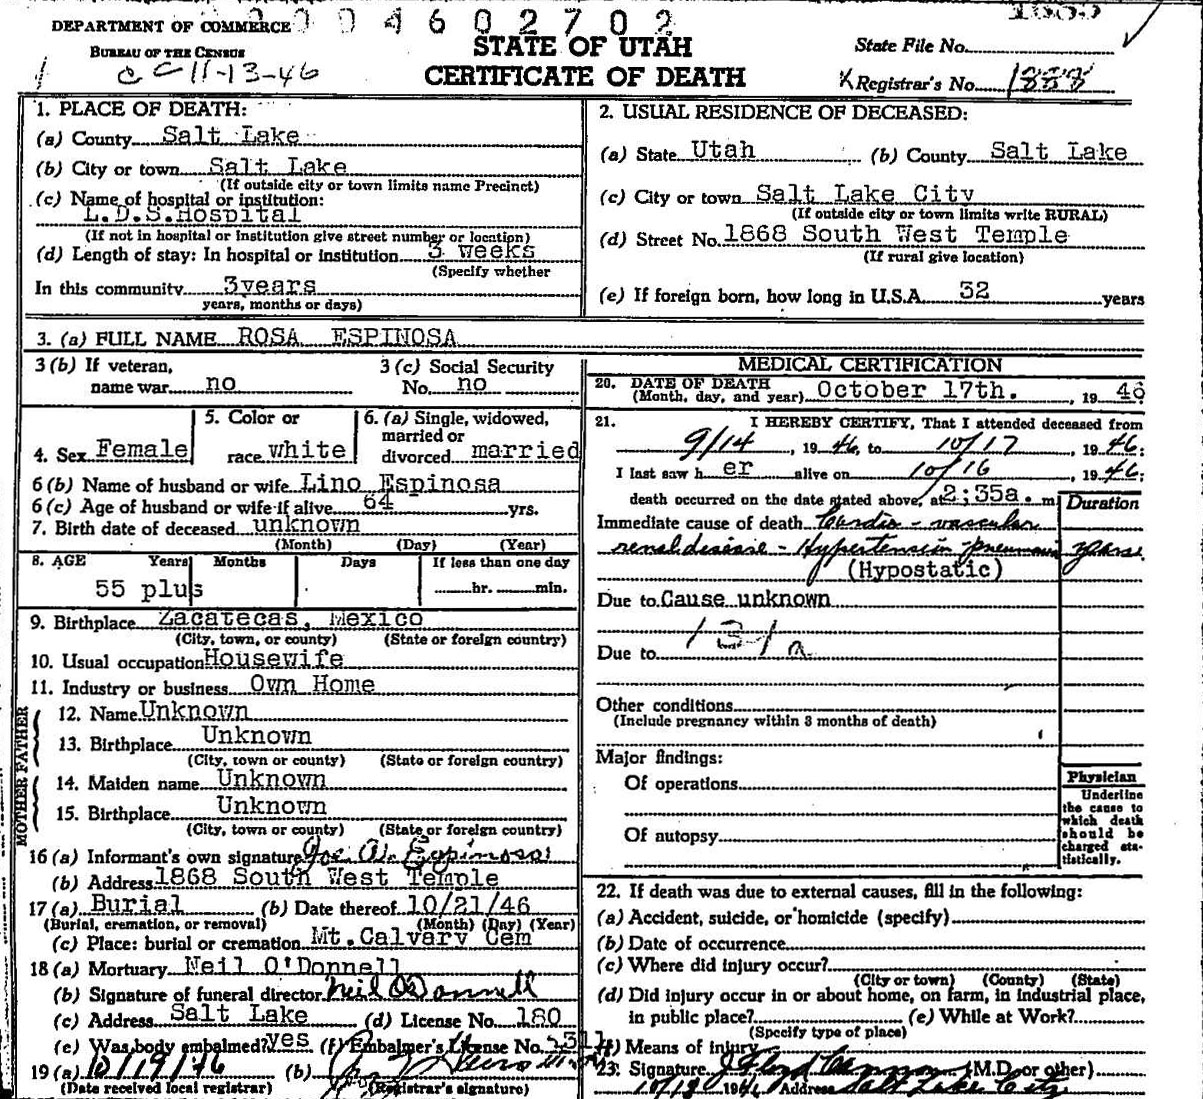 DEPARTMENT OF COMMERCE
BUREAU OF THE CENSUS
004602702
CC 11-13-46
STATE OF UTAH
CERTIFICATE OF DEATH
State File No.
Registrar's No. 1888
1. PLACE OF DEATH:
(a) County Salt Lake
(b) City or town Salt Lake
(If outside city or town limits name Precinct)
(c) Name of hospital or institution:
L.D.S.Hospital
(If not in hospital or institution give street number or location)
(d) Length of stay: In hospital or institution 3 weeks
(Specify whether
In this community 3years
years, months or days)
2. USUAL RESIDENCE OF DECEASED:
(a) State Utah (b) County Salt Lake
(c) City or town Salt Lake City
(If outside city or town limits write RURAL)
(d) Street No. 1868 South West Temple
(If rural give location)
(e) If foreign born, how long in U.S.A. 32 years
3. (a) FULL NAME ROSA ESPINOSA
3 (b) If veteran,
name war no
3 (c) Social Security
No. no
4. Sex Female
5. Color or
race white
6. (a) Single, widowed,
married or
divorced married
6 (b) Name of husband or wife Lino Espinosa
6 (c) Age of husband or wife if alive 64 yrs.
7. Birth date of deceased unknown
(Month) (Day) (Year)
8. AGE Years Months Days If less than one day
55 plus hr. min.
9. Birthplace Zacatecas, Mexico
(City, town, or county) (State or foreign country)
10. Usual occupation Housewife
11. Industry or business Own Home
FATHER
12. Name Unknown
13. Birthplace Unknown
(City, town or county) (State or foreign country)
MOTHER
14. Maiden name Unknown
15. Birthplace Unknown
(City, town or county) (State or foreign country)
16 (a) Informant's own signature Joe A. Espinosa
(b) Address 1868 South West Temple
17 (a) Burial (b) Date thereof 10/21/46
(Burial, cremation, or removal) (Month) (Day) (Year)
(c) Place: burial or cremation Mt.Calvary Cem
18 (a) Mortuary Neil O'Donnell
(b) Signature of funeral director Neil O'Donnell
(c) Address Salt Lake (d) License No. 180
(e) Was body embalmed? yes (f) Embalmer's License No.
19 (a) 10/19/46 (b)
(Date received local registrar) (Registrar's signature)
MEDICAL CERTIFICATION
20. DATE OF DEATH
(Month, day, and year) October 17th. , 19 46
21. I HEREBY CERTIFY, That I attended deceased from
9/14 , 19 46, to 10/17 19 46;
I last saw h er alive on 10/16 , 19 46;
death occurred on the date stated above, at 2:35a. m
Duration
Immediate cause of death Cardio-vascular
renal disease - Hypertension - pneumonia years
(Hypostatic)
Due to Cause unknown
131a
Due to
Other conditions
(Include pregnancy within 3 months of death)
Major findings:
Of operations
Of autopsy
Physician
Underline
the cause to
which death
should be
charged sta-
tistically.
22. If death was due to external causes, fill in the following:
(a) Accident, suicide, or homicide (specify)
(b) Date of occurrence
(c) Where did injury occur?
(City or town) (County) (State)
(d) Did injury occur in or about home, on farm, in industrial place,
in public place? (e) While at Work?
(Specify type of place)
(f) Means of injury
23. Signature J Floyd Cannon (M.D. or other)
Address Salt Lake City